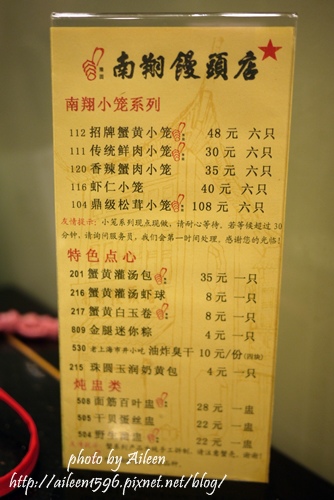 南翔饅頭店
南翔小笼系列
112 招牌蟹黄小笼: 48 元 六只
111 传统鲜肉小笼: 30 元 六只
120 香辣蟹肉小笼 35 元 六只
116 虾仁小笼 40 元 六只
104 鼎级松茸小笼: 108 元 六只
友情提示:小笼系列现点现做,请耐心等待,若等候超过 30
分钟,请询问服务员,我们会第一时间处理,感谢您的光临!
特色点心
201 蟹黄灌汤包 35 元 一只
216 蟹黄灌汤虾球 8 元 一只
217 蟹黄白玉卷 8 元 一只
809 金腿迷你粽 4 元 一只
530 老上海市井小吃 油炸臭干 10 元/份(四块)
215 珠圆玉润奶黄包 4 元 一只
炖盅类
508 面筋百叶盅 28 元 一盅
505 干贝蛋丝盅 22 元 一盅
504 22 元 一盅
photo by Aileen
http://aileen1596.pixnet.net/blog/